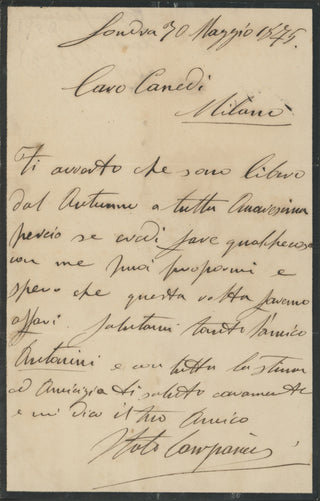 Londra 30 Maggio 1875.
Caro Canedi
Milano
Ti avverto che sono libero
dal Autunno a tutta Quaresima
perciò se credi fare qualche cosa
con me puoi propormi e
spero che questa volta faremo
affari. Salutami tanto l'amico
Antonini e con tutta la stima
ed Amicizia ti saluto caramente
e mi dico il tuo Amico
Italo Campanini